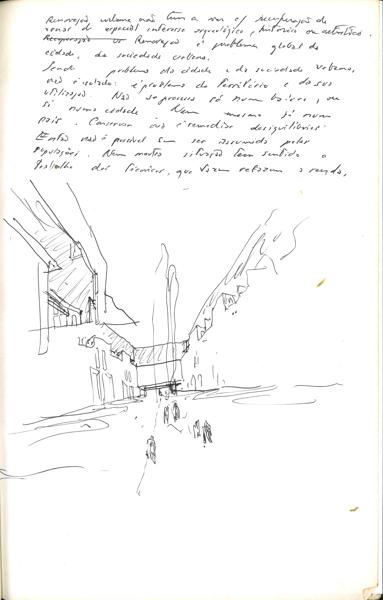 Renovação urbana não tem a ver c/ recuperação de
zonas de especial interesse arqueológico, histórico ou
Renovação é problema global da
cidade, da sociedade urbana.
Sendo problema da cidade e da sociedade urbana,
não é isolado: é problema do território e da sua
utilização. Não se processa só num bairro, ou
só numa cidade. Nem mesmo só num
país. Conservar não é remediar desiquilíbrios.
Então não é possível sem ser assumida pelas
populações. Nem noutra situação tem sentido o
trabalho dos técnicos, que